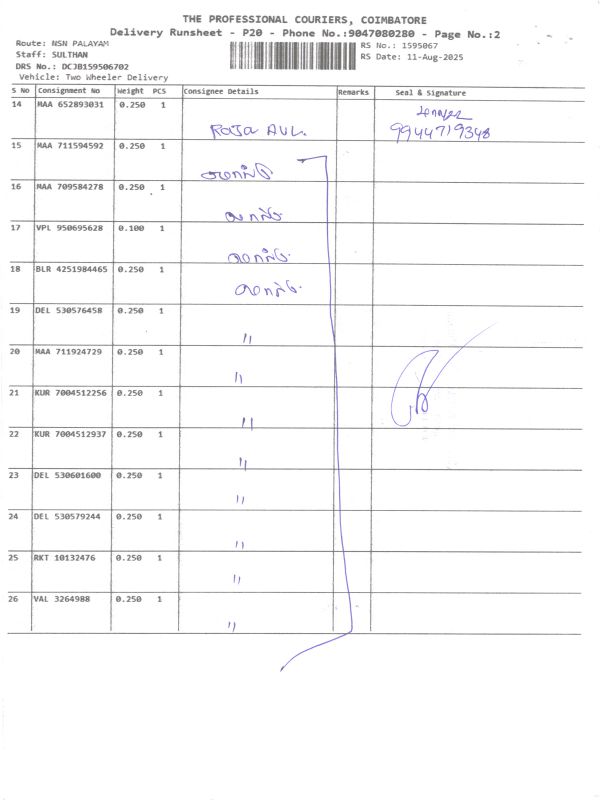 THE PROFESSIONAL COURIERS, COIMBATORE
Delivery Runsheet - P20 - Phone No.:9047080280 - Page No.:2
Route: NSN PALAYAM
Staff: SULTHAN
DRS No.: DCJB159506702
Vehicle: Two Wheeler Delivery
RS No.: 1595067
RS Date: 11-Aug-2025
S No Consignment No Weight PCS Consignee Details Remarks Seal & Signature
14 MAA 652893031 0.250 1
Raja AVL. 9944719348
15 MAA 711594592 0.250 1
16 MAA 709584278 0.250 1
17 VPL 950695628 0.100 1
18 BLR 4251984465 0.250 1
19 DEL 530576458 0.250 1
"
20 MAA 711924729 0.250 1
"
21 KUR 7004512256 0.250 1
"
22 KUR 7004512937 0.250 1
"
23 DEL 530601600 0.250 1
"
24 DEL 530579244 0.250 1
"
25 RKT 10132476 0.250 1
"
26 VAL 3264988 0.250 1
"